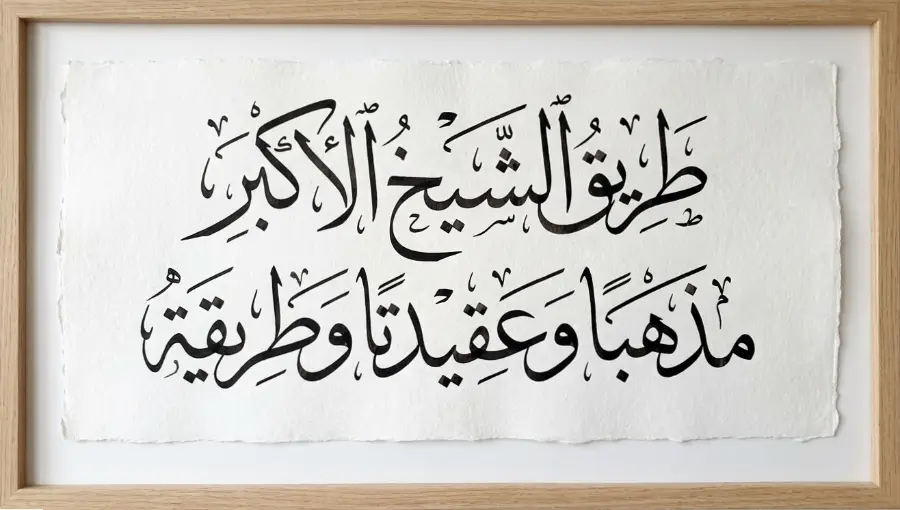 طَرِيقُ ٱلشَّيْخُ ٱلأَكْبَرِ
مذهَبًا وَعَقِيدتًا وَطَرِيقَةُ